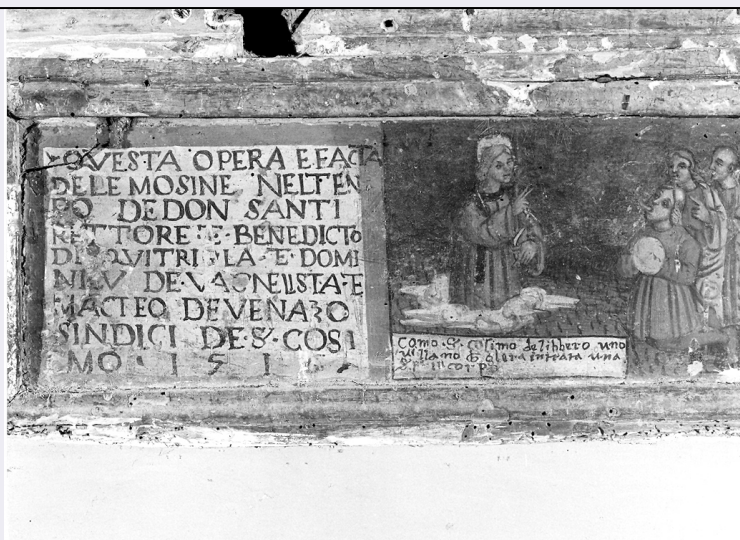 QVESTA OPERA E FACTA
DELE MOSINE NELTEN
PO DEDON SANTI
RETTORE E BENEDICTO
DI QVITRI LA E DOMI
DE E
MACTEO DEVENA
SINDICI DE S COSI
MO 1 5 1
Como S cosimo delibbero uno
era intrata una